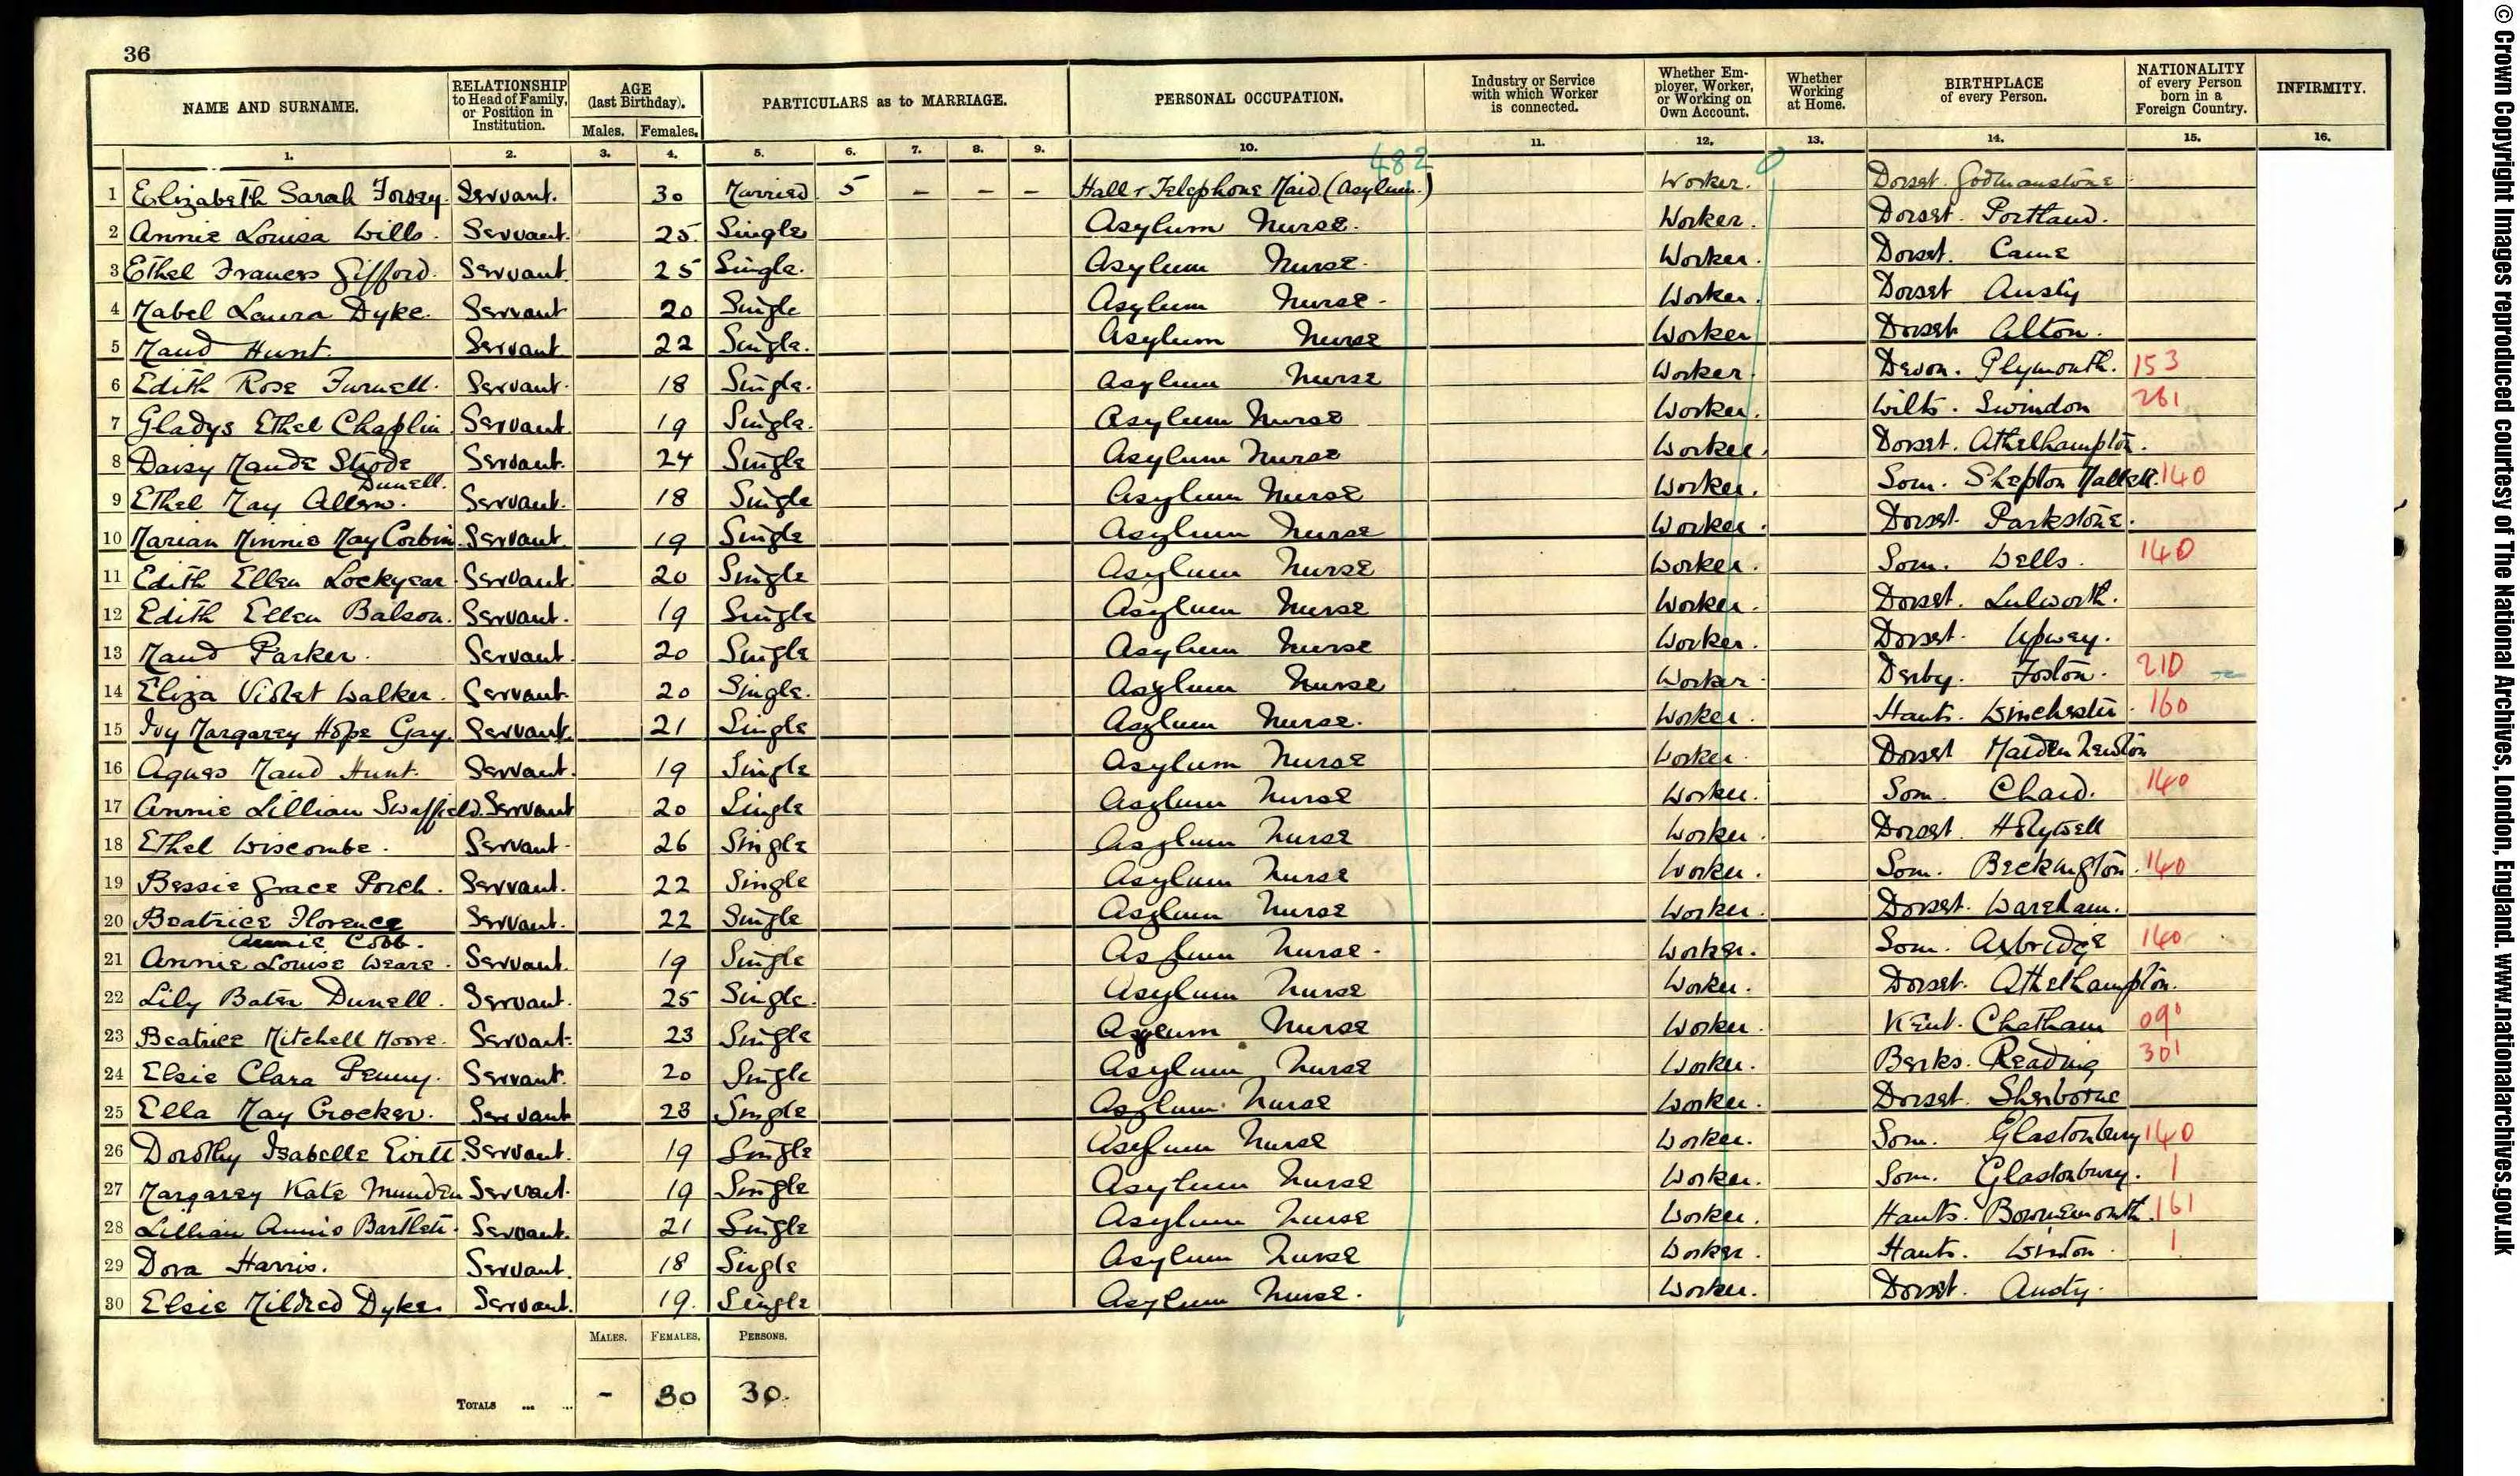 36
NAME AND SURNAME. RELATIONSHIP to Head of Family, or Position in Institution. AGE (last Birthday). Males. Females. PARTICULARS as to MARRIAGE. PERSONAL OCCUPATION. Industry or Service with which Worker is connected. Whether Employer, Worker, or Working on Own Account. Whether Working at Home. BIRTHPLACE of every Person. NATIONALITY of every Person born in a Foreign Country. INFIRMITY.
1. 2. 3. 4. 5. 6. 7. 8. 9. 10. 11. 12. 13. 14. 15. 16.
482
1 Elizabeth Sarah Forsey. Servant. 30 Married 5 - - - Hall & Telephone Maid (Asylum.) Worker. Dorset. Godmanstone
2 Annie Louisa Wills. Servant. 25. Single Asylum Nurse. Worker. Dorset. Portland.
3 Ethel Frances Gifford. Servant 25 Single. Asylum Nurse. Worker. Dorset. Came
4 Mabel Laura Dyke. Servant 20 Single Asylum Nurse. Worker. Dorset Ansty
5 Maud Hunt. Servant 22 Single. Asylum Nurse Worker Dorset Alton.
6 Edith Rose Furnell. Servant. 18 Single. Asylum Nurse Worker. Devon. Plymouth. 153
7 Gladys Ethel Chaplin. Servant. 19 Single. Asylum Nurse Worker. Wilts. Swindon 261
8 Daisy Maude Strode Dunell. Servant. 24 Single Asylum Nurse Worker. Dorset. Athelhampton.
9 Ethel May Allen. Servant. 18 Single Asylum Nurse Worker. Som. Shepton Mallett. 140
10 Marian Minnie May Corbin. Servant. 19 Single Asylum Nurse Worker. Dorset. Parkstone.
11 Edith Ellen Lockyear. Servant. 20 Single Asylum Nurse Worker. Som. Wells. 140
12 Edith Ellen Balson. Servant. 19 Single Asylum Nurse Worker. Dorset. Lulworth.
13 Maud Parker. Servant. 20 Single Asylum Nurse Worker. Dorset. Upwey.
14 Eliza Violet Walker. Servant. 20 Single. Asylum Nurse Worker. Derby. Foston. 210
15 Ivy Margarey Hope Gay. Servant. 21 Single Asylum Nurse. Worker. Hants. Winchester. 160
16 Agnes Maud Hunt. Servant. 19 Single Asylum Nurse Worker. Dorset Maiden Newton
17 Annie Lillian Swaffield. Servant 20 Single Asylum Nurse Worker. Som. Chard. 140
18 Ethel Wiscombe. Servant. 26 Single Asylum Nurse Worker. Dorset. Holywell
19 Bessie Grace Porch. Servant. 22 Single Asylum Nurse Worker. Som. Beckington. 140
20 Beatrice Florence Annie Cobb. Servant. 22 Single Asylum Nurse Worker. Dorset. Wareham.
21 Annie Louise Weare. Servant. 19 Single Asylum Nurse. Worker. Som. Axbridge 140
22 Lily Bater Dunell. Servant. 25 Single. Asylum Nurse Worker. Dorset. Athelhampton.
23 Beatrice Mitchell Moore. Servant. 23 Single Asylum Nurse Worker. Kent. Chatham 090
24 Elsie Clara Penny. Servant. 20 Single Asylum Nurse Worker. Berks. Reading 301
25 Ella May Crocker. Servant 23 Single Asylum Nurse Worker. Dorset. Sherborne
26 Dorothy Isabelle Evitt. Servant. 19 Single Asylum Nurse Worker. Som. Glastonbury 140
27 Margarey Kate Munden Servant. 19 Single Asylum Nurse Worker. Som. Glastonbury. 1
28 Lillian Annie Bartlett. Servant. 21 Single Asylum Nurse Worker. Hants. Bournemouth. 161
29 Dora Harris. Servant. 18 Single Asylum Nurse Worker. Hants. Winton. 1
30 Elsie Mildred Dyke. Servant. 19. Single Asylum Nurse. Worker. Dorset. Ansty.
MALES. FEMALES. PERSONS.
TOTALS ... ... - 30 30.
© Crown Copyright Images reproduced courtesy of The National Archives, London, England. www.nationalarchives.gov.uk